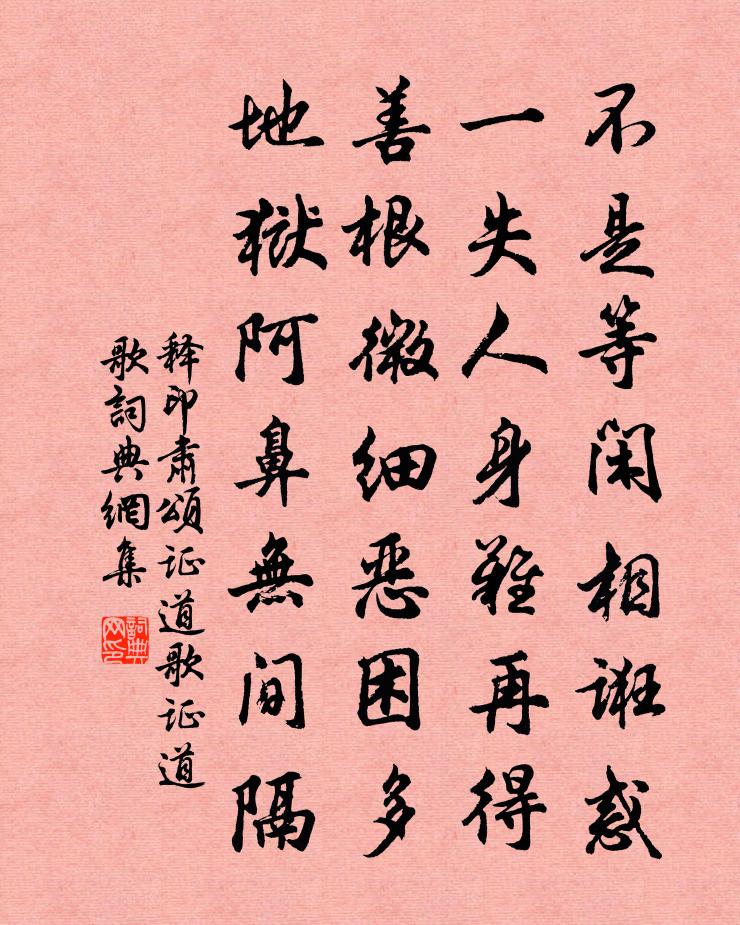 不是等闲相诳惑
一失人身难再得
善根微细恶困多
地獄阿鼻無间隔
释印肃颂证道歌证道
歌詞典網集
詞典
网印